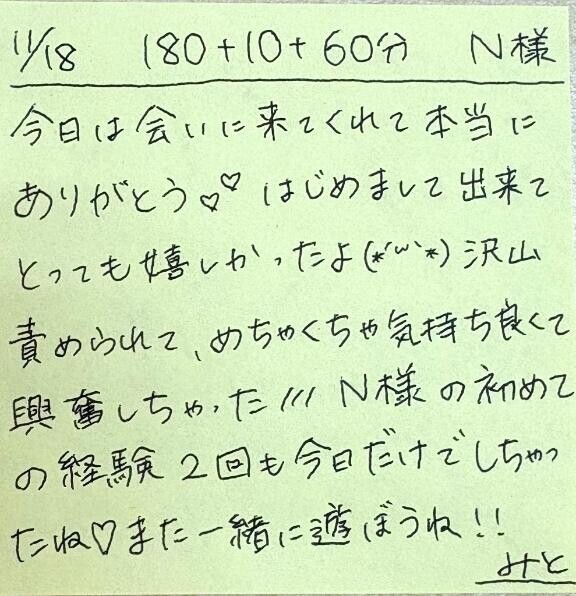 11/18 180+10+60分 N様
今日は会いに来てくれて本当に
ありがとう♡♡ はじめまして出来て
とっても嬉しかったよ(*´ω`*)沢山
責められて、めちゃくちゃ気持ち良くて
興奮しちゃった/// N様の初めて
の経験2回も今日だけでしちゃっ
たね♡また一緒に遊ぼうね!!
みと